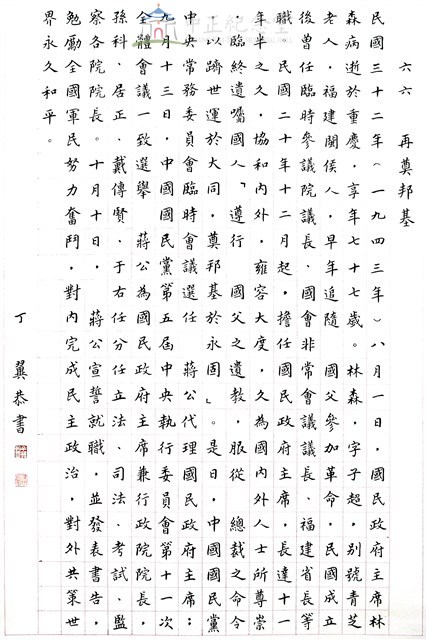 六六　再奠邦基
民國三十二年（一九四三年）八月一日，國民政府主席林
森病逝於重慶，享年七十七歲。林森，字子超，別號青芝
老人，福建閩侯人，早年追隨　國父參加革命，民國成立
後曾任臨時參議院議長、國會非常會議議長、福建省長等
職，民國二十年十二月起，擔任國民政府主席，長達十一
年半之久，協和內外，雍容大度，久為國內外人士所尊崇
，臨終遺囑國人「遵行　國父之遺教，服從　總裁之命令
，以躋世運於大同，奠邦基於永固」。是日，中國國民黨
中央常務委員會臨時會議選任　蔣公代理國民政府主席；
九月十三日，中國國民黨第五屆中央執行委員會第十一次
全體會議一致選舉　蔣公為國民政府主席兼行政院院長，
孫科、居正、戴傳賢、于右任分任立法、司法、考試、監
察各院院長。十月十日，　蔣公宣誓就職，並發表書告，
勉勵全國軍民努力奮鬥，對內完成民主政治，對外共策世
界永久和平。
丁翼恭書